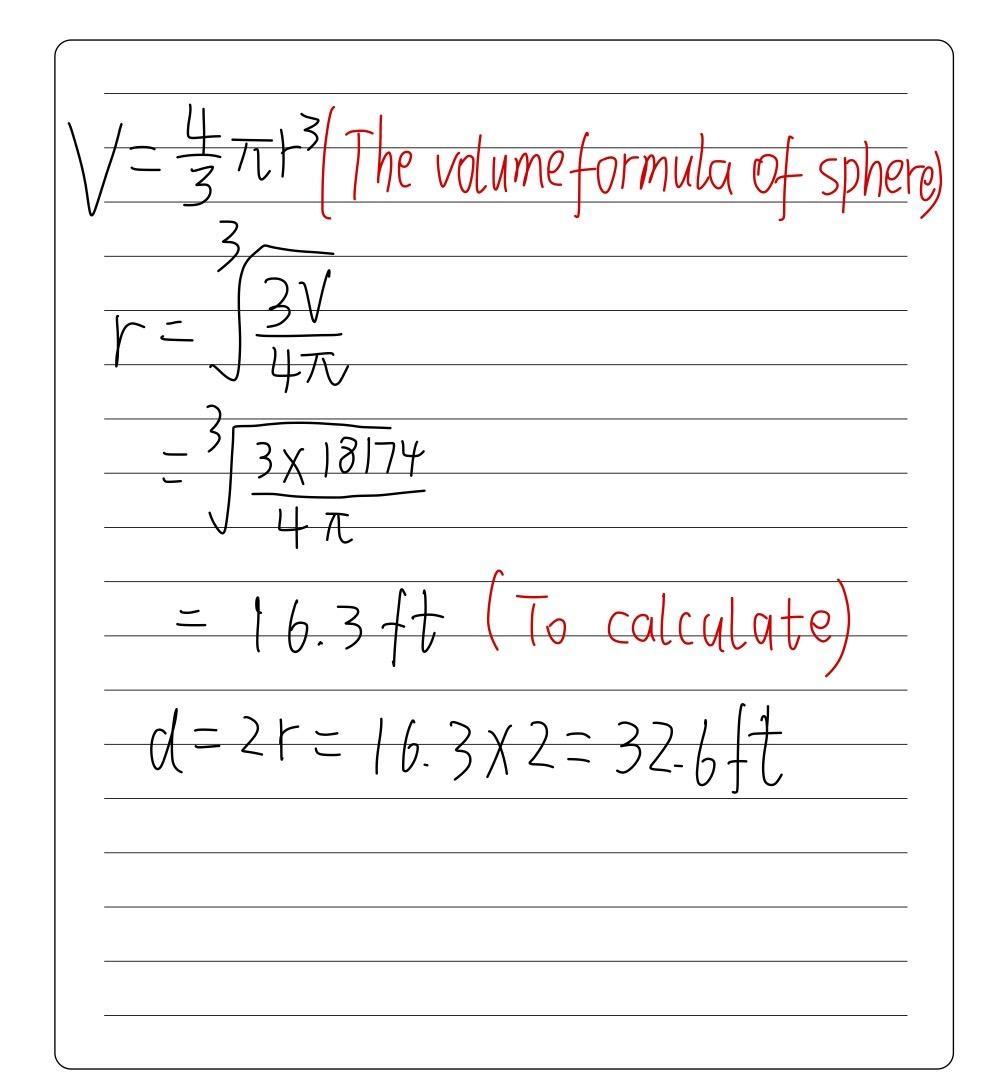 V = 4/3 πr³ (The volume formula of sphere)
r = ∛(3V/4π)
= ∛(3×18174/4π)
= 16.3 ft (To calculate)
d = 2r = 16.3×2 = 32.6 ft